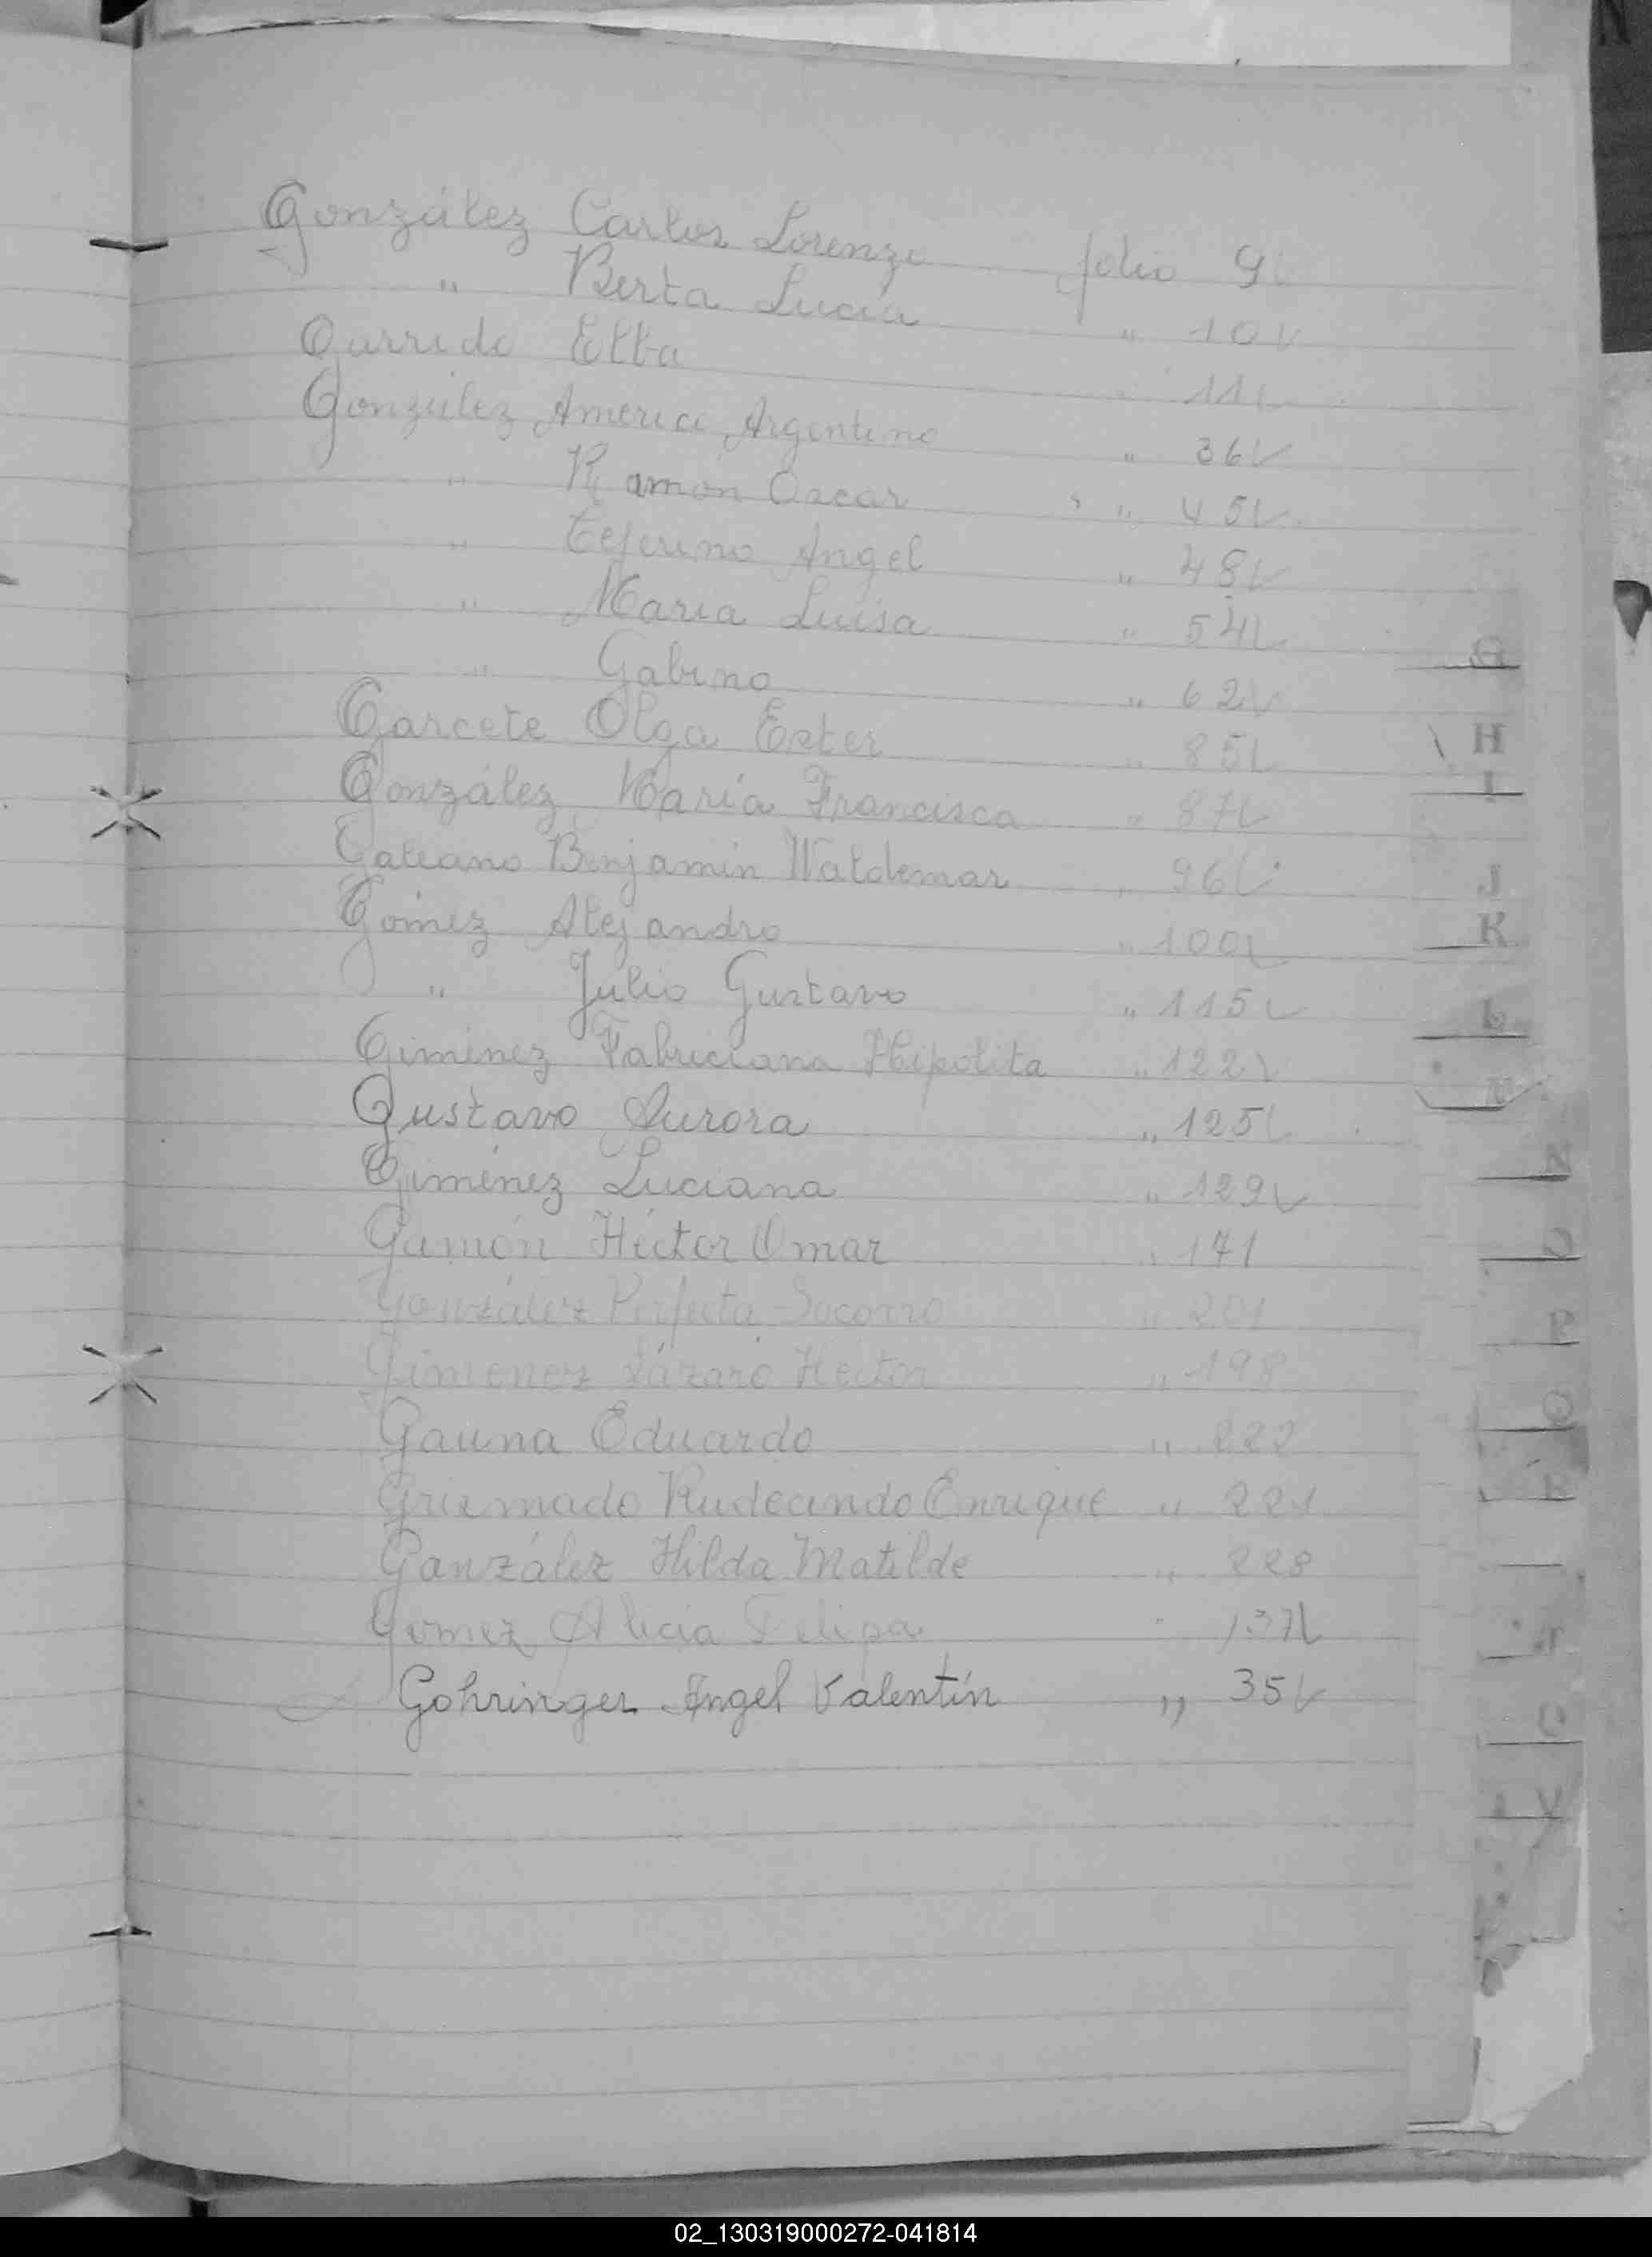 González Carlos Lorenzo folio 9
" Berta Lucía " 10
Garrido Elba " 11
González Americo Argentino " 36
" Ramón Oscar " 45
" Ceferino Angel " 48
" Maria Luisa " 54
" Gabino " 62
Garcete Olga Ester " 85
González María Francisca " 87
Galeano Benjamín Waldemar " 96
Gómez Alejandro " 100
" Julio Gustavo " 115
Giménez Fabriciana Hipólita " 122
Gustavo Aurora " 125
Giménez Luciana " 129
Gamón Héctor Omar " 171
González Perfecta Socorro " 201
Gimenez Lázaro Hector " 198
Gauna Eduardo " 222
Grismado Rudecindo Enrique " 221
Ganzález Hilda Matilde " 228
Gomez Alicia Felipa " 137
Gohringer Angel Valentín " 35
G
H
I
J
K
L
N
O
P
Q
R
T
V
02_130319000272-041814